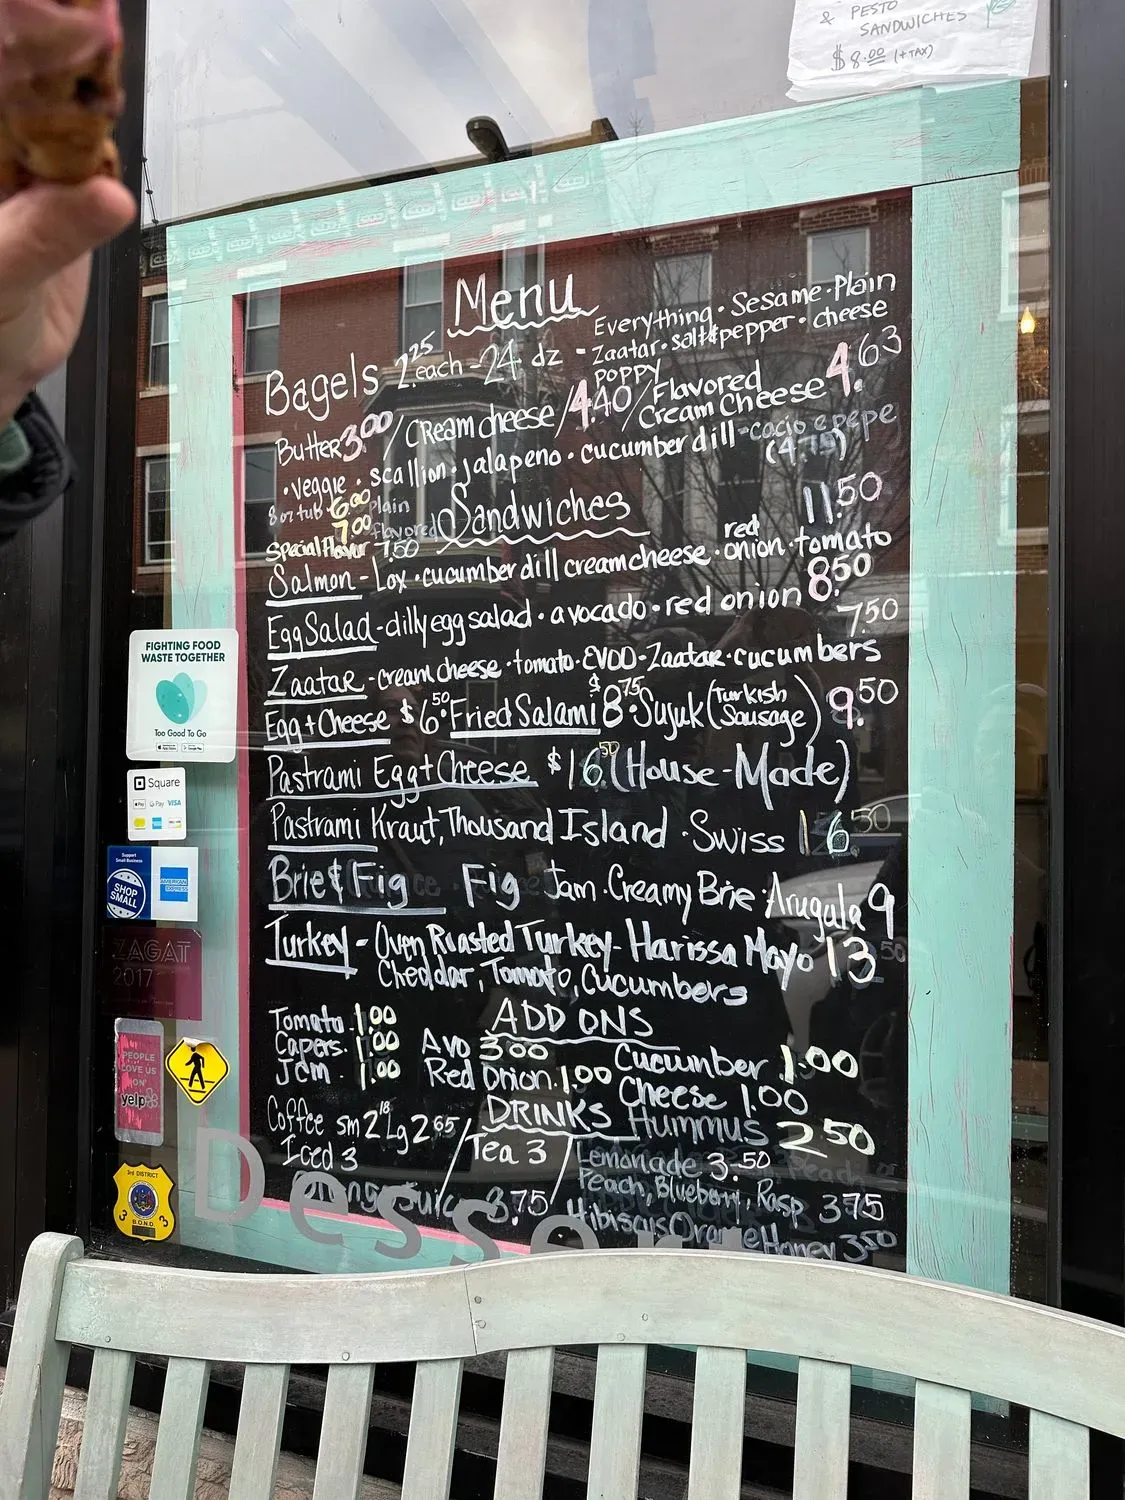 & PESTO
SANDWICHES
$8.00 (+TAX)
Menu
Bagels 2.25 each - 24 dz - Everything · Sesame · Plain
Zaatar · salt & pepper · cheese
poppy
Butter 3.00 / Cream cheese / 4.40 / Flavored Cream Cheese 4.63
· veggie · scallion · jalapeno · cucumber dill - cacio e pepe (4.75)
8 oz tub 6.00 plain
7.00 flavored
Special flavor 7.50
Sandwiches
Salmon - Lox · cucumber dill creamcheese · red onion · tomato 11.50
Egg Salad - dilly egg salad · avocado · red onion 8.50
Zaatar - cream cheese · tomato · EVOO - Zaatar · cucumbers 7.50
Egg + Cheese $6.50 Fried Salami $8.75 · Sujuk (Turkish Sausage) 9.50
Pastrami Egg + Cheese $16.50 (House-Made)
Pastrami Kraut, Thousand Island · Swiss 16.50
Brie & Fig Fig Jam · Creamy Brie · Arugula 9
Turkey - Oven Roasted Turkey - Harissa Mayo 13.50
Cheddar, Tomato, Cucumbers
ADD ONS
Tomato 1.00
Capers. 1.00
Jam . 1.00
Avo 3.00
Red Onion. 1.00
Cucumber 1.00
Cheese 1.00
Hummus 2.50
DRINKS
Coffee sm 2.18 Lg 2.65
Iced 3
Tea 3
Lemonade 3.50
Peach, Blueberry, Rasp 3.75
3.75
Hibiscus Orange Honey 3.50
Dessert
FIGHTING FOOD
WASTE TOGETHER
Too Good To Go
Square
Pay
G Pay
VISA
Support
Small Business
SHOP
SMALL
AMERICAN
EXPRESS
ZAGAT
2017
PEOPLE
LOVE US
ON
yelp
3rd DISTRICT
3 3
B.O.N.D